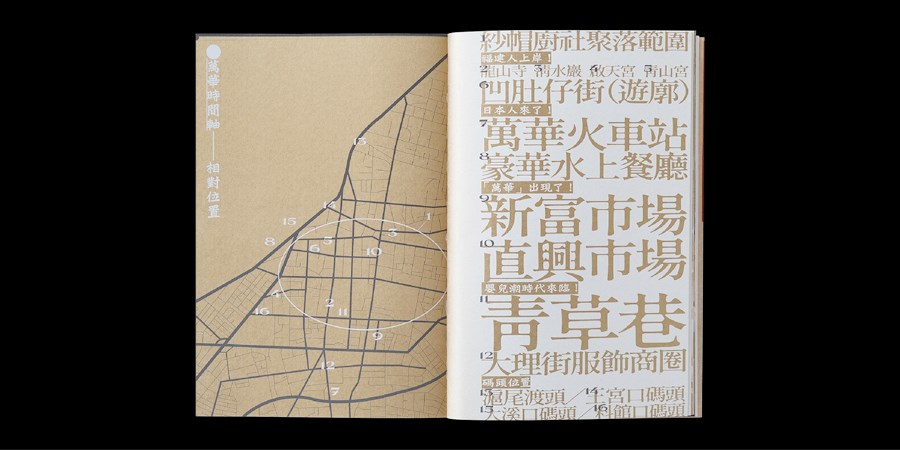 萬華時間軸——相對位置
13
14
15
1
3
8
5
6
10
4
2
16
11
9
12
7
1 紗帽廚社聚落範圍
福建人上岸！
2 龍山寺 3 清水巖 4 啟天宮 5 青山宮
6 凹肚仔街(遊廓)
日本人來了！
7 萬華火車站
8 豪華水上餐廳
「萬華」出現了！
9 新富市場
10 直興市場
嬰兒潮時代來臨！
11 青草巷
12 大理街服飾商圈
碼頭位置
13 滬尾渡頭／14 王宮口碼頭
15 大溪口碼頭／16 料館口碼頭